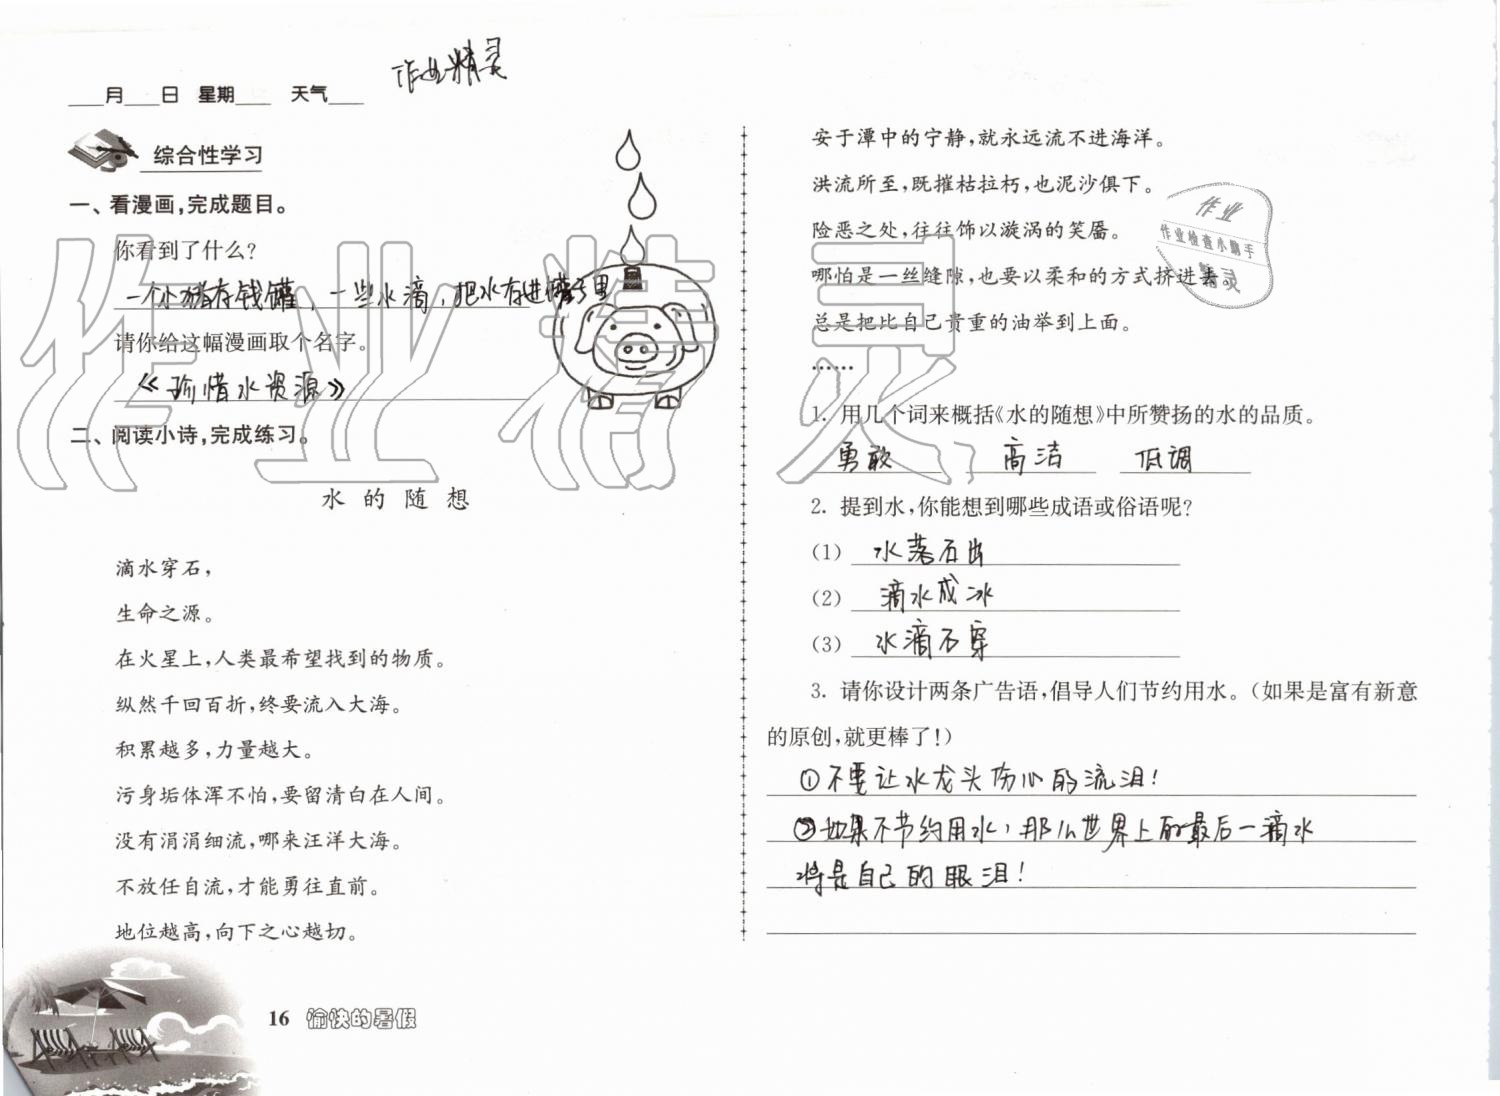 作业精灵
___月___日 星期___ 天气___
综合性学习
一、看漫画,完成题目。
你看到了什么?
一个小猪存钱罐,一些水滴,把水存进罐子里
请你给这幅漫画取个名字。
《珍惜水资源》
二、阅读小诗,完成练习。
水的随想
滴水穿石,
生命之源。
在火星上,人类最希望找到的物质。
纵然千回百折,终要流入大海。
积累越多,力量越大。
污身垢体浑不怕,要留清白在人间。
没有涓涓细流,哪来汪洋大海。
不放任自流,才能勇往直前。
地位越高,向下之心越切。
16 愉快的暑假
安于潭中的宁静,就永远流不进海洋。
洪流所至,既摧枯拉朽,也泥沙俱下。
险恶之处,往往饰以漩涡的笑靥。
哪怕是一丝缝隙,也要以柔和的方式挤进去。
总是把比自己贵重的油举到上面。
……
1. 用几个词来概括《水的随想》中所赞扬的水的品质。
勇敢 高洁 低调
2. 提到水,你能想到哪些成语或俗语呢?
(1) 水落石出
(2) 滴水成冰
(3) 水滴石穿
3. 请你设计两条广告语,倡导人们节约用水。(如果是富有新意
的原创,就更棒了!)
①不要让水龙头伤心的流泪!
②如果不节约用水,那么世界上的最后一滴水
将是自己的眼泪!
作业
作业检查小助手
精灵
作业精灵